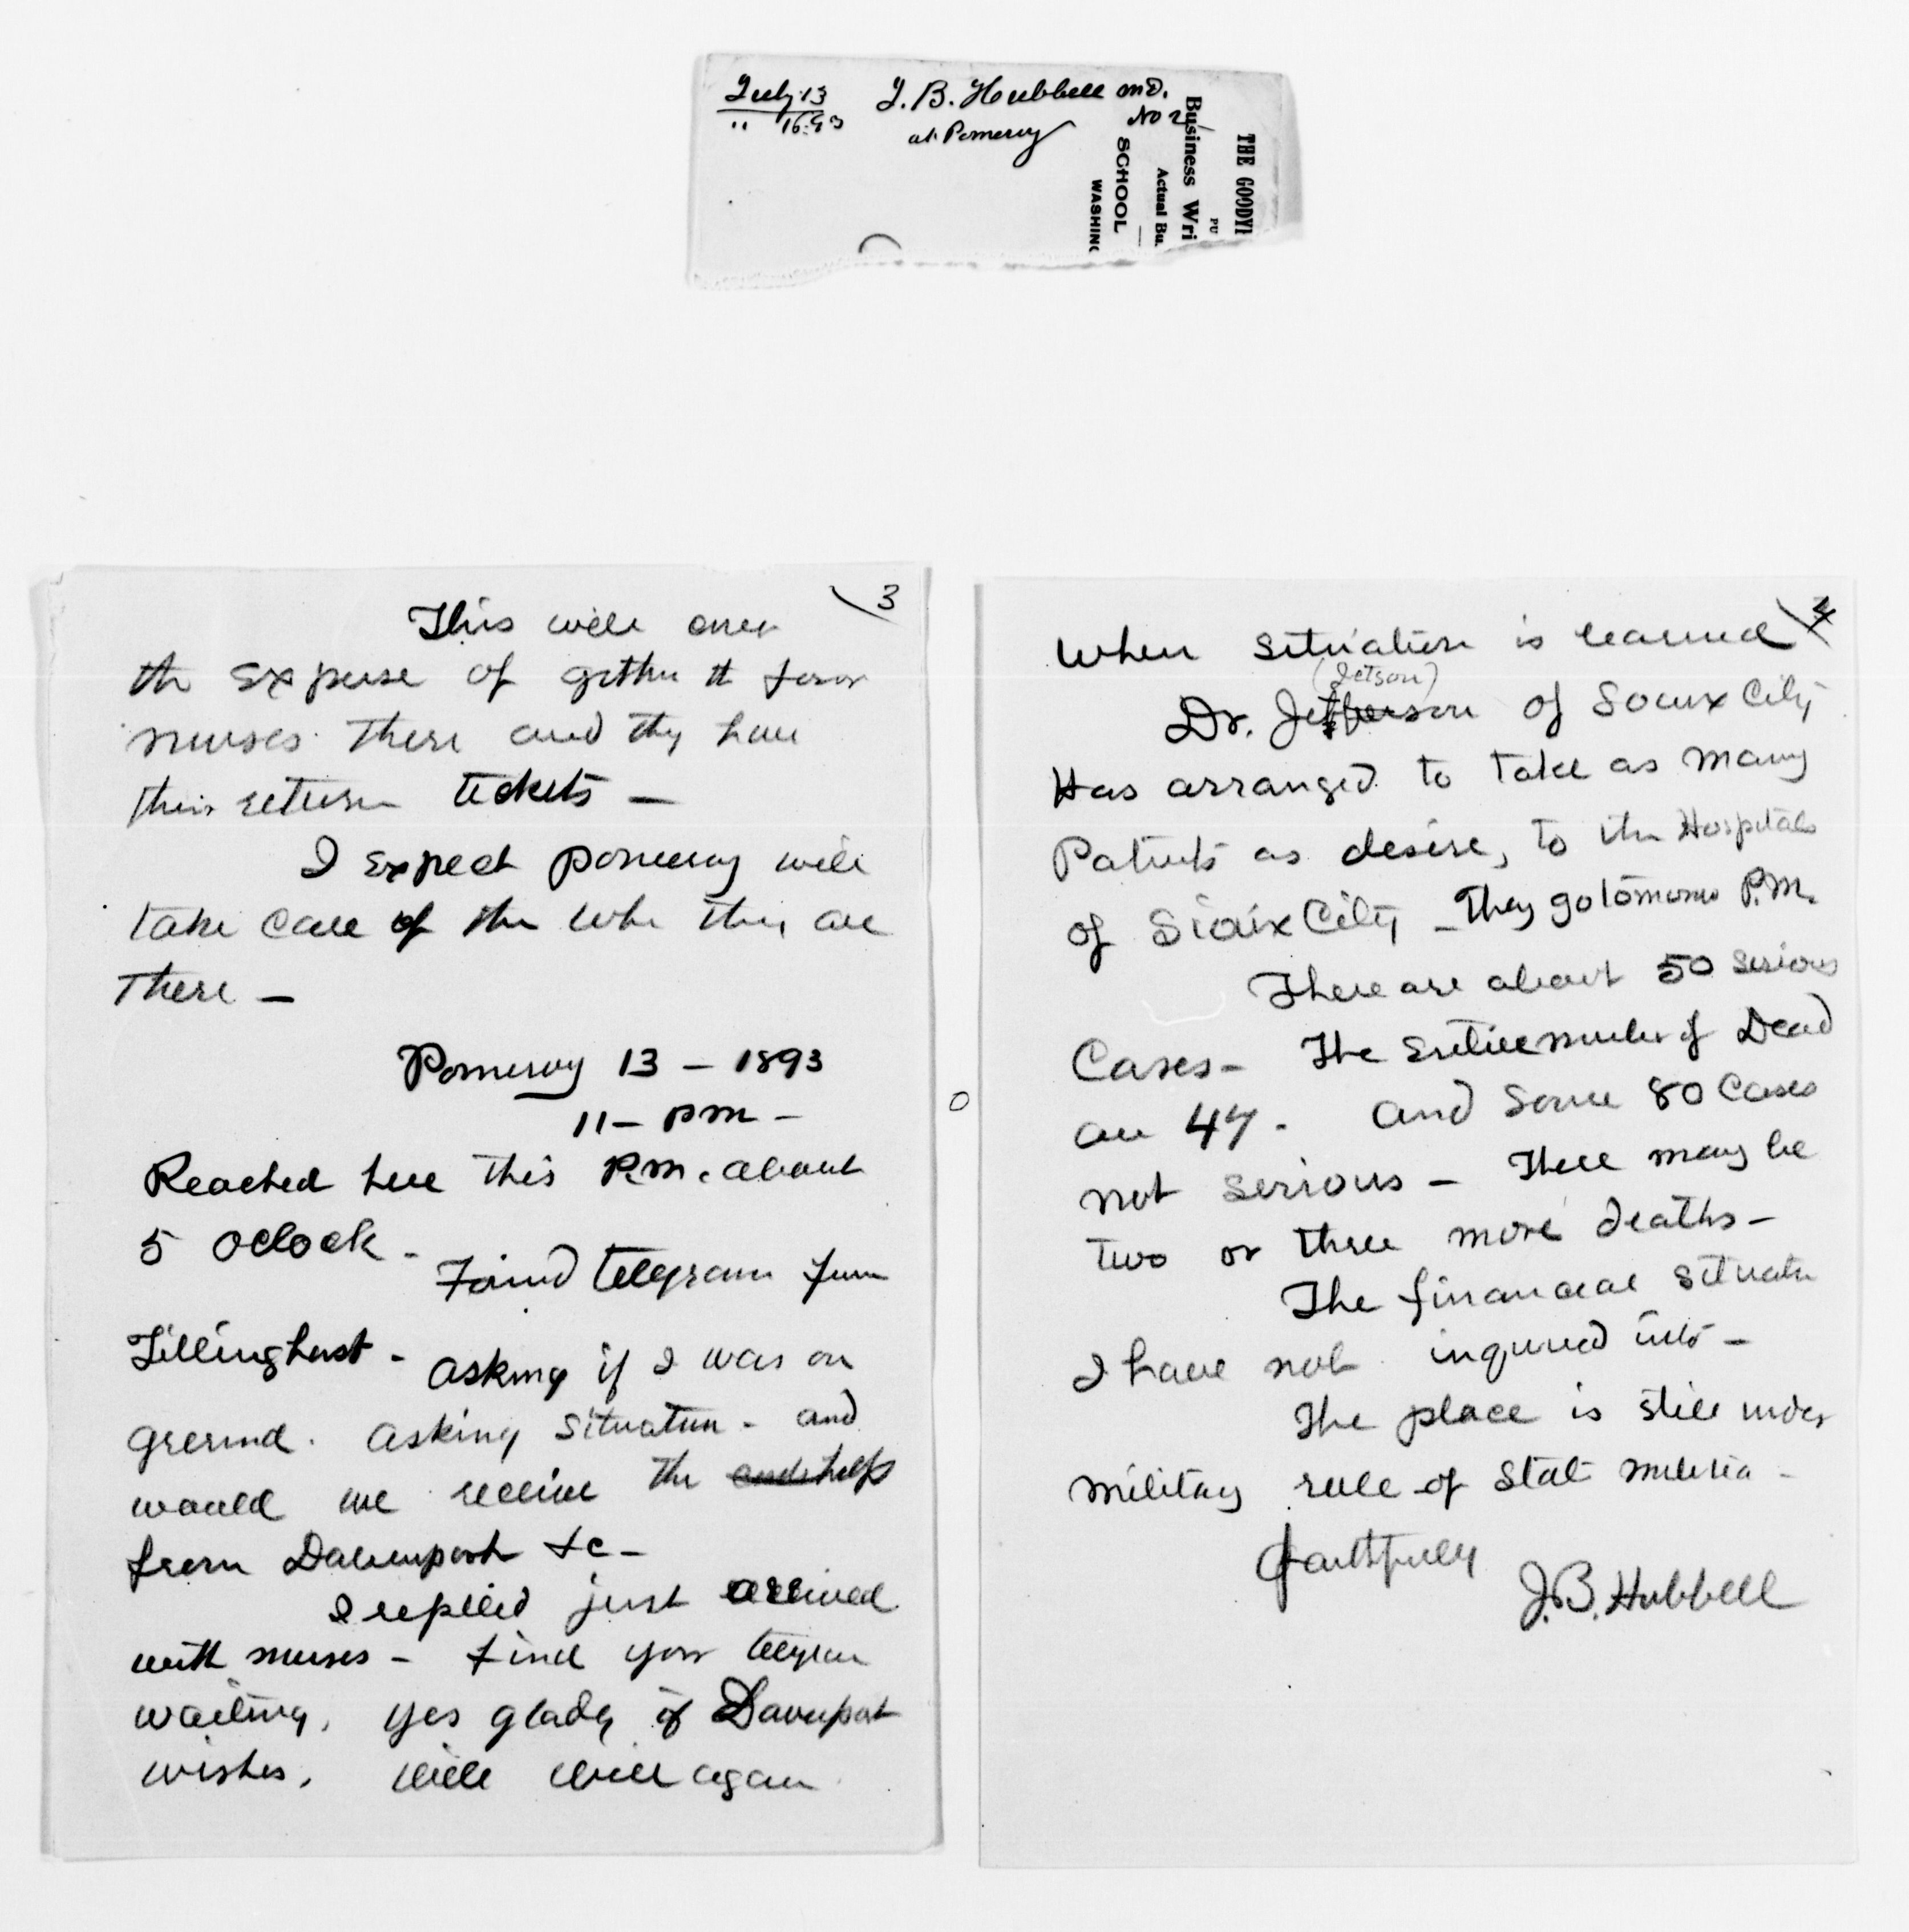 July 13
" 16. 93
J. B. Hubbell MD.
No 2
at Pomeroy
THE GOODY
PU
Business Wri
Actual Bu.
SCHOOL
WASHING
3
This will over
the expense of gettin the four
nurses there and they have
their return tickets —
I expect Pomeroy will
take care of the while they are
there —
Pomeroy 13 – 1893
11 – pm –
Reached here this P.m. about
5 oclock –
Found telegram from
Tillinghast – asking if I was on
ground. asking situation – and
would we receive the help
from Davenport &c –
I replied just arrived
with nurses – find your telegram
waiting. yes gladly if Davenport
wishes. Will wire again
4
When situation is learned
(Jetson)
Dr. Jefferson of Souix City
Has arranged to take as many
Patients as desire, to the Hospitals
of Sioix City – They go tomorrow P.M.
There are about 50 serious
Cases – The entire number of Dead
are 47. and some 80 Cases
not serious – There may be
two or three more deaths –
The financial situation
I have not inquired into –
The place is still under
military rule of State militia –
Faithfully
J.B. Hubbell